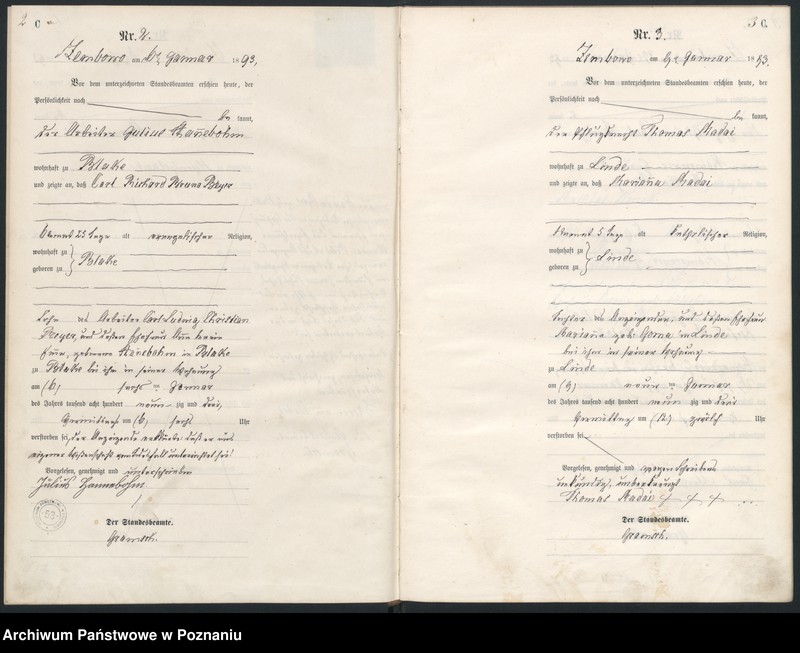 2 C
Nr. 2.
Zembowo am 6ten Januar 1893.
Vor dem unterzeichneten Standesbeamten erschien heute, der
Persönlichkeit nach
be kannt,
der Arbeiter Julius Hannebohm
wohnhaft zu Blake
und zeigte an, daß Carl Richard Bruno Beyer
alt evangelischer Religion,
wohnhaft zu
geboren zu Blake
Sohn des Arbeiter Carl Ludwig Christian
Beyer, und dessen Ehefrau
geborene Hannebohm in Blake
zu Blake bei ihm in seiner Wohnung
am (6) sechs ten Januar
des Jahres tausend acht hundert neun zig und drei,
Vormittags um (6) sechs Uhr
verstorben sei, der Anzeigende erklärte daß er aus
eigener Wissenschaft von dem unterrichtet sei!
Vorgelesen, genehmigt und unterschrieben
Julius Hannebohm
53
Der Standesbeamte.
Gramsch.
3 C.
Nr. 3.
Zembowo am ten Januar 1893.
Vor dem unterzeichneten Standesbeamten erschien heute, der
Persönlichkeit nach
be kannt,
der Thomas Madai
wohnhaft zu Linde
und zeigte an, daß Marianna Madai
5 Tage alt katholischer Religion,
wohnhaft zu
geboren zu Linde
Tochter des Anzeigenden, und dessen Ehefrau
Marianna geb. in Linde
bei ihm in seiner Wohnung
zu Linde
am (9) neun ten Januar
des Jahres tausend acht hundert neun zig und drei
Vormittag um (12) zwölf Uhr
verstorben sei
Vorgelesen, genehmigt und wegen Schreibens
unkundig, unterkreuzt
Thomas Madai + + +
Der Standesbeamte.
Gramsch.
Archiwum Państwowe w Poznaniu